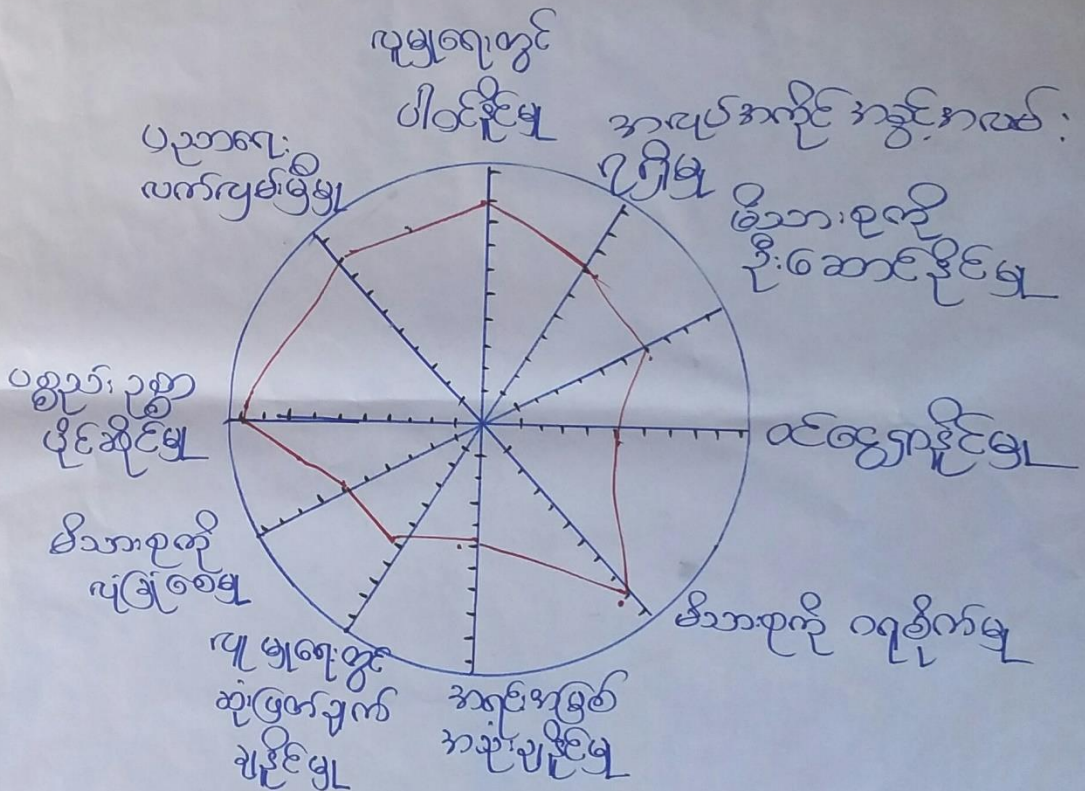 လူမှုရေးတွင်
ပါဝင်နိုင်မှု
အလုပ်အကိုင် အခွင့်အလမ်း
ရရှိမှု
မိသားစုကို
ဦးဆောင်နိုင်မှု
ဝင်ငွေရှာနိုင်မှု
မိသားစုကို ဂရုစိုက်မှု
အရင်းအမြစ်
အသုံးချနိုင်မှု
လူမှုရေးတွင်
ဆုံးဖြတ်ချက်
ချနိုင်မှု
မိသားစုကို
လုံခြုံစေမှု
ပစ္စည်းဥစ္စာ
ပိုင်ဆိုင်မှု
ပညာရေး
လက်လှမ်းမှီမှု